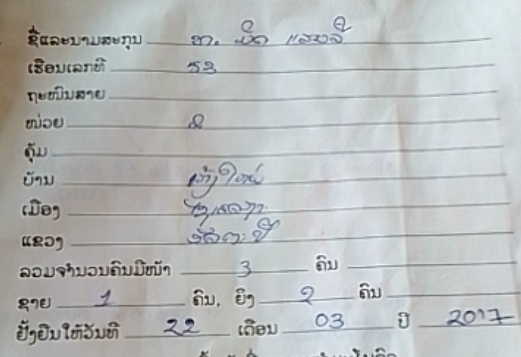 ຊື່ແລະນາມສະກຸນ ທ. ພັດ ແສງລີ
ເຮືອນເລກທີ 53
ຖະໜົນສາຍ
ໜ່ວຍ 2
ຄຸ້ມ
ບ້ານ ໃໝ່
ເມືອງ
ແຂວງ ອັດຕະປື
ລວມຈຳນວນຄົນມີໜ້າ 3 ຄົນ
ຊາຍ 1 ຄົນ, ຍິງ 2 ຄົນ
ຢັ້ງຢືນໃຫ້ວັນທີ 22 ເດືອນ 03 ປີ 2017